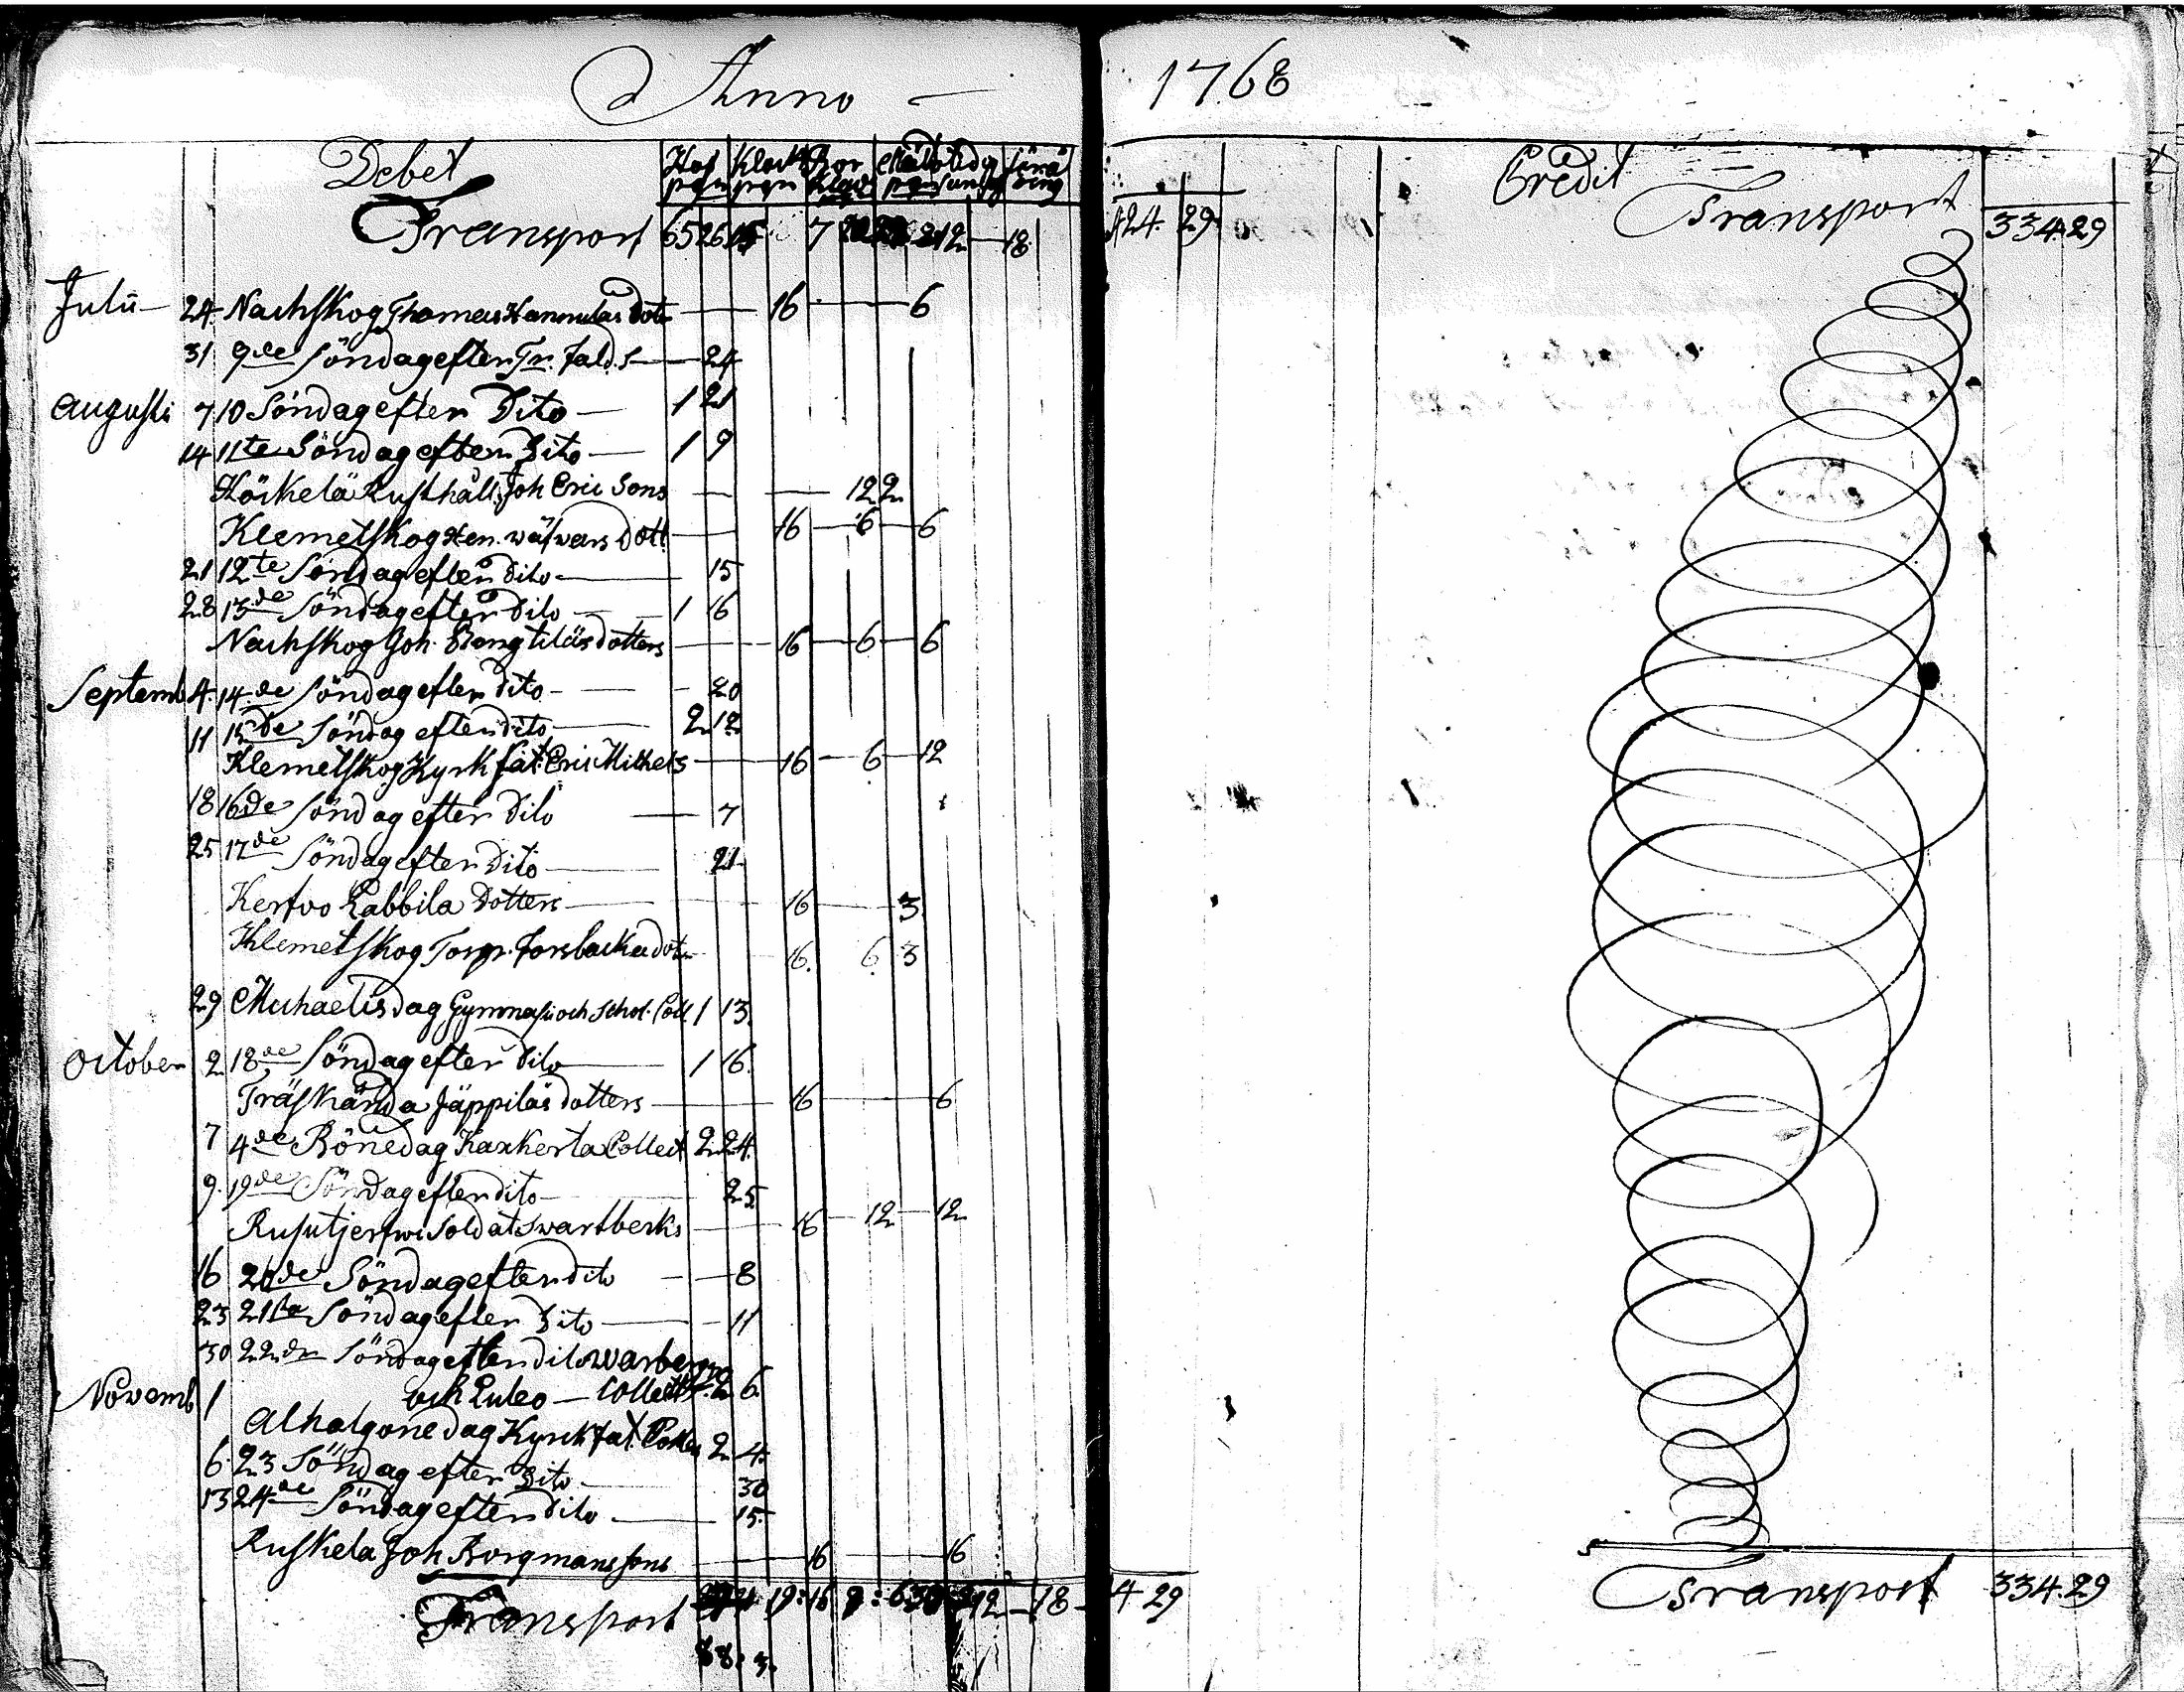 Anno — 1768
Debet
Transport 65 26 7 12 — 18
Julii — 24 Nachskog Thomas Hannulas dott — 16 — 6
31 9de Söndag efter Tr. — 24
Augusti 7 10 Söndag efter Dito — 1 21
14 11te Söndag efter Dito — 1 9
Rusthåll Joh Eric Sons — — 12 2
Klemetskog Hen. wäfvars dott — 16 — 6 — 6
21 12te Söndag efter dito — 15
28 13de Söndag efter dito — 1 16
Nachskog Joh. Bengtiläs dotters — 16 — 6 — 6
Septemb 4. 14de Söndag efter dito — 20
11 15de Söndag efter dito — 2 12
Klemetskog Kyrk Eric Mickels — 16 — 6 — 12
18 16de Söndag efter dito — 7
25 17de Söndag efter Dito — 21
Kerfvo Rabbila Dotters — 16 — 3
Klemetskog Torp. Forsbacka dott — 16. 6 3
29 Michaelis dag Gymnasii och Schol. Coll 1 13.
October 2 18de Söndag efter dito — 1 16.
Träskända Jäppiläs dotters — 16 — 6
7 4de Bönedag Kaxkerta Collect 2 24.
9. 19de Söndag efter dito — 25
Rusutjerfwi Soldat Swartberks — 16 — 12 — 12
16 20de Söndag efter dito — 8
23 21sta Söndag efter Dito — 11
30 22dra Söndag efter dito Warberg
och Luleo — Collect 2 6
Novemb 1 Alhelgone dag Kyrk 2 4.
6. 23 Söndag efter Dito — 30
13 24de Söndag efter dito — 15.
Ruskela Joh Borgmans sons — 16 — 16
Transport 19:16 12 — 18 — 4 29
88. 3.
424. 29.
Credit
Transport 334.29
Transport 334.29